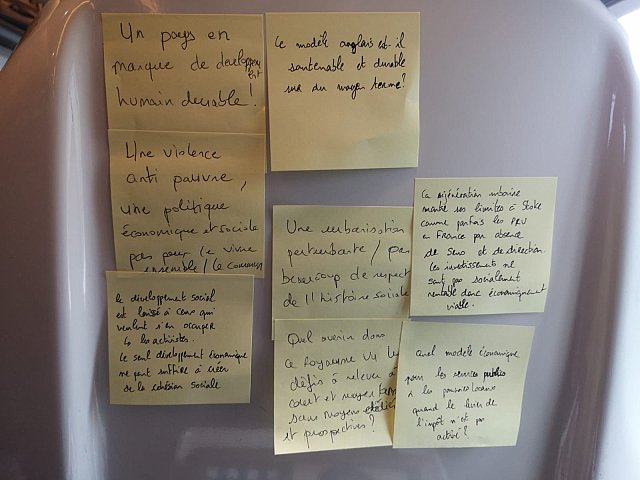 Un pays en
manque de développe
ment
humain durable !
Le modèle anglais est-il
soutenable et durable
sur du moyen terme ?
Une violence
anti pauvre,
une politique
économique et sociale
pas pour le vivre
ensemble / le commun
le développement social
est laissé à ceux qui
veulent s'en occuper
les activistes.
Le seul développement économique
ne peut suffire à créer
de la cohésion sociale
Une urbanisation
perturbante / pas
beaucoup de respect
de l'histoire sociale
La régénération urbaine
montre ses limites à Stoke
comme parfois les PRU
en France par absence
de Sens et de direction.
Les investissements ne
sont pas socialement
rentable donc économiquement
viable.
Quel avenir dans
ce royaume vu les
défis à relever à
court et moyen terme
sans moyens
et prospectives ?
Quel modèle économique
pour les services publics
à les pouvoirs locaux
quand le levier de
l'impôt n'est pas
activé ?